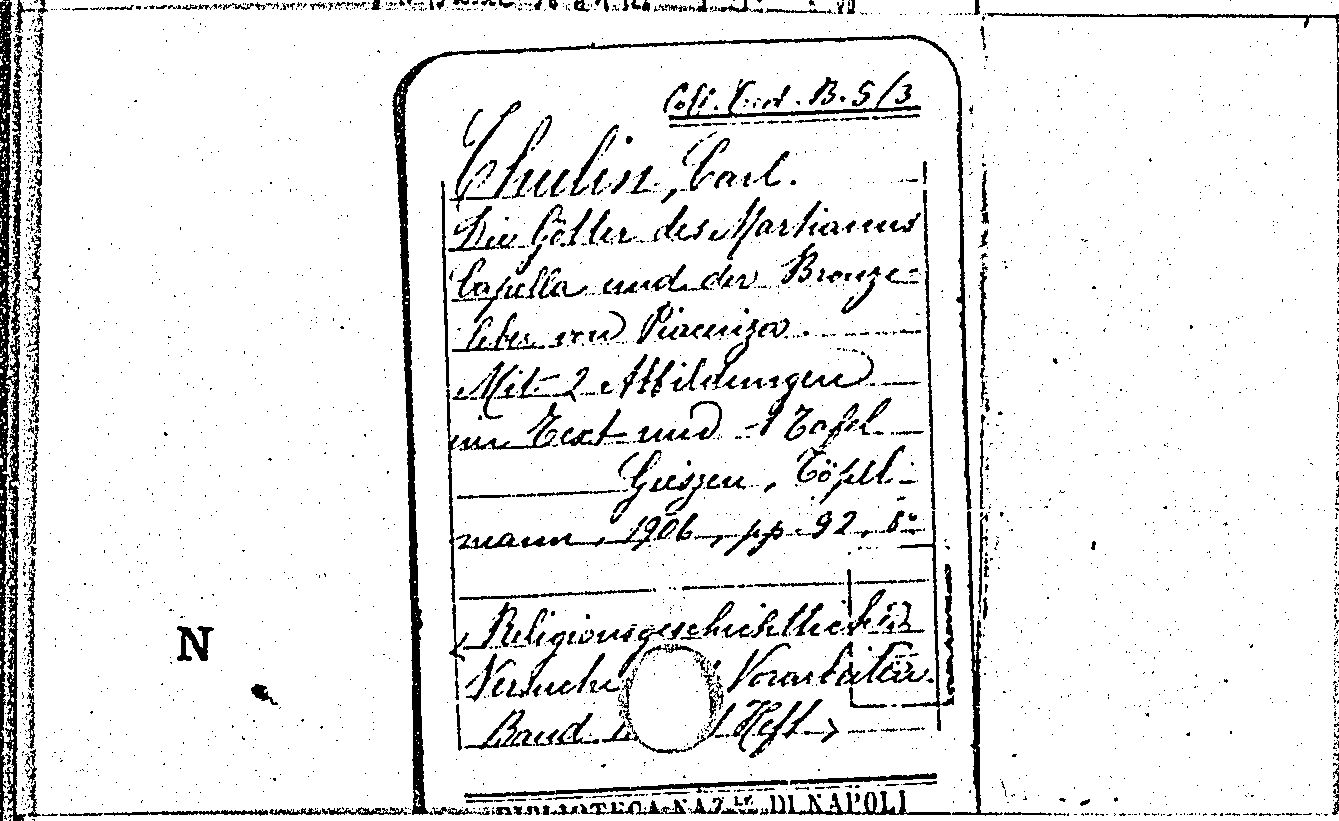 Coll. B. 5/3
Thulin, Carl.
Die Götter des Martianus
Capella und der Bronze-
leber von Piacenza.
Mit 2 Abbildungen
im Text und 1 Tafel
Gieszen, Töpel-
mann, 1906, pp. 92, 8°
< Religionsgeschichtliche
N
Versuche Vorarbeiten.
Band Heft >
BIBLIOTECA NAZ.LE DI NAPOLI